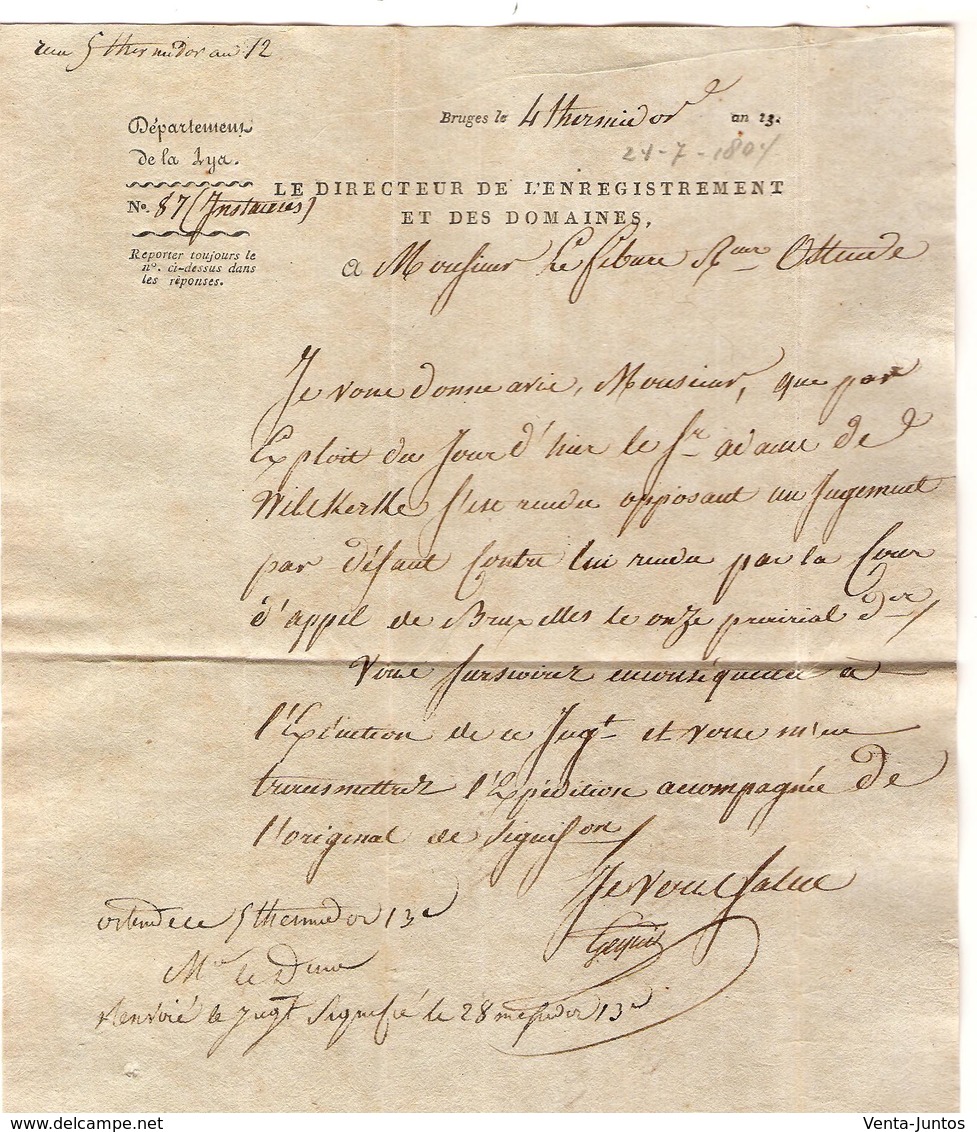 5 thermidor an 12
Bruges le 4 thermidor an 13.
Département
de la Lys.
24-7-1804
LE DIRECTEUR DE L'ENREGISTREMENT
ET DES DOMAINES,
No. 87 (Instances)
Reporter toujours le
no. ci-dessus dans
les réponses.
a Monsieur Le febure Reur Ostende
Je vous donne avis, Monsieur, que par
Exploit du Jour d'hier le Sr adanne de
Wilskerke s'est rendu opposant au Jugement
par défaut Contre lui rendu par la Cour
d'appel de Bruxelles le onze prairial der
Vous surseoirez en conséquence à
l'Exécution de ce Jugt et vous m'en
transmettrez l'Expédition accompagnée de
l'original de Signifon
Je vous salue
ostende le 5 thermidor 13e
Mr le Dteur
Renvoié le Jugt Signifié le 28 messidor 13e
delcampe.net
Venta-Juntos